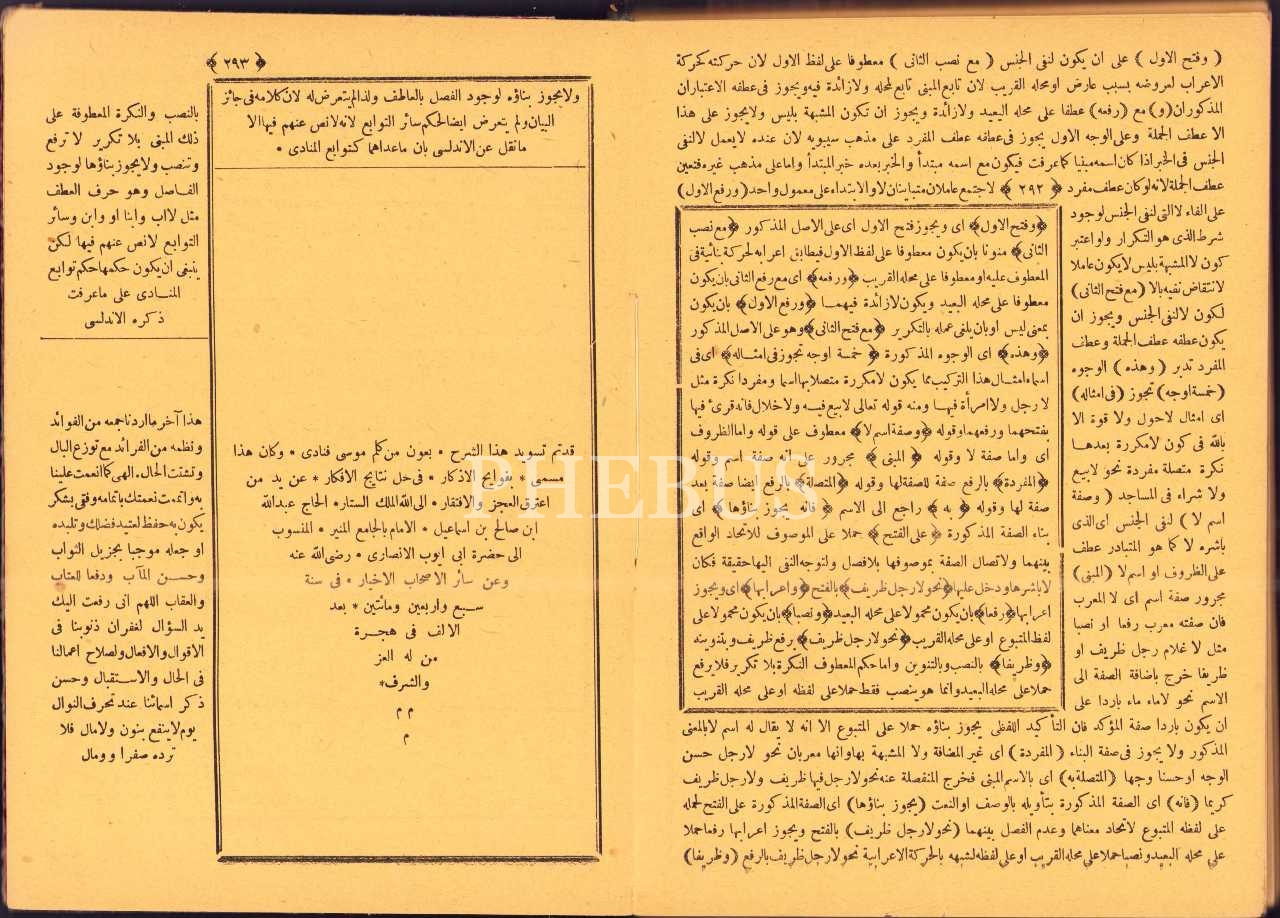 ( وفتح الاول ) على ان يكون لنفى الجنس ( مع نصب الثانى ) معطوفا على لفظ الاول لان حركته كحركة
الاعراب لعروضه بسبب عارض او محله القريب لان تابع المبنى تابع لمحله ولا زائدة فيه ويجوز فى عطفه الاعتباران
المذكوران (و) مع (رفعه) عطفا على محله البعيد ولا زائدة ويجوز ان تكون المشبهة بليس ولا يجوز على هذا
الا عطف الجملة وعلى الوجه الاول يجوز فى عطفه عطف المفرد على مذهب سيبويه لان عنده لا يعمل لا لنفى
الجنس فى الخبر اذا كان اسمه مبنيا كما عرفت فيكون مع اسمه مبتدأ والخبر بعده خبر المبتدأ واما على مذهب غيره فتعين
عطف الجملة لانه لو كان عطف مفرد ﴿ ٢٩٢ ﴾ لاجتمع عاملان متباينان لا والابتداء على معمول واحد (ورفع الاول)
على الغاء لا التى لنفى الجنس لوجود
شرط الذى هو التكرار ولو اعتبر
كون لا المشبهة بليس لا يكون عاملا
لانتقاض نفيه بالا (مع فتح الثانى)
لكون لا لنفى الجنس ويجوز ان
يكون عطفه عطف الجملة وعطف
المفرد تدبر ( وهذه ) الوجوه
(خمسة اوجه) تجوز (فى امثاله)
اى امثال لاحول ولا قوة الا
بالله فى كون لا مكررة بعدها
نكرة متصلة مفردة نحو لا بيع
ولا شراء فى المساجد ( وصفة
اسم لا ) لنفى الجنس اى الذى
باشره لا كما هو المتبادر عطف
على الظروف او اسم لا (المبنى)
مجرور صفة اسم اى لا المعرب
فان صفته معرب رفعا او نصبا
مثل لا غلام رجل ظريف او
ظريفا خرج باضافة الصفة الى
الاسم نحو لا ماء ماء باردا على
ان يكون باردا صفة المؤكد فان التأكيد اللفظى يجوز بناؤه حملا على المتبوع الا انه لا يقال له اسم لا بالمعنى
المذكور ولا يجوز فى صفة البناء ( المفردة ) اى غير المضافة ولا المشبهة بها وانها معربان نحو لا رجل حسن
الوجه او حسنا وجها (المتصلة به) اى بالاسم المبنى فخرج المنفصلة عنه نحو لا رجل فيها ظريف ولا رجل ظريف
كريما (فانه) اى الصفة المذكورة بتأويله بالوصف او النعت (يجوز بناؤها) اى الصفة المذكورة على الفتح لحمله
على لفظه المتبوع لاتحاد معناهما وعدم الفصل بينهما (نحو لا رجل ظريف) بالفتح ويجوز اعرابها رفعا حملا
على محله البعيد ونصبا حملا على محله القريب او على لفظه لشبهه بالحركة الاعرابية نحو لا رجل ظريف بالرفع (وظريفا)
﴿وفتح الاول﴾ اى ويجوز فتح الاول اى على الاصل المذكور ﴿مع نصب
الثانى﴾ منونا بان يكون معطوفا على لفظ الاول فيطابق اعرابه لحركة بنائية فى
المعطوف عليه او معطوفا على محله القريب ﴿ورفعه﴾ اى مع رفع الثانى بان يكون
معطوفا على محله البعيد ويكون لا زائدة فيهما ﴿ورفع الاول﴾ بان يكون
بمعنى ليس او بان يلغى عمله بالتكرير ﴿مع فتح الثانى﴾ وهو على الاصل المذكور
﴿وهذه﴾ اى الوجوه المذكورة ﴿ خمسة اوجه تجوز فى امثاله﴾ اى فى
اسماء امثال هذا التركيب مما يكون لا مكررة متصلا بها اسما ومفردا نكرة مثل
لا رجل ولا امرأة فيها ومنه قوله تعالى لا بيع فيه ولا خلال فانه قرئ فيها
بفتحهما ورفعهما وقوله ﴿وصفة اسم لا﴾ معطوف على قوله واما الظروف
اى واما صفة لا وقوله ﴿ المبنى ﴾ مجرور على انه صفة اسم وقوله
﴿المفردة﴾ بالرفع صفة للصفة لها وقوله ﴿المتصلة﴾ بالرفع ايضا صفة بعد
صفة لها وقوله ﴿ به ﴾ راجع الى الاسم ﴿ فانه يجوز بناؤها ﴾ اى
بناء الصفة المذكورة ﴿على الفتح ﴾ حملا على الموصوف للاتحاد الواقع
بينهما ولاتصال الصفة بموصوفها بلا فصل ولتوجه النفى اليها حقيقة فكان
لا باشرها ودخل عليها ﴿نحو لا رجل ظريف﴾ بالفتح ﴿واعرابها﴾ اى ويجوز
اعرابها ﴿رفعا﴾ بان يكون محمولا على محله البعيد ﴿ونصبا﴾ بان يكون محمولا على
لفظ المتبوع او على محله القريب ﴿نحو لا رجل ظريف﴾ برفع ظريف وبتنوينه
﴿وظريفا﴾ بالنصب وبالتنوين واما حكم المعطوف النكرة بلا تكرير فلا يرفع
حملا على محله البعيد وانما هو ينصب فقط حملا على لفظه او على محله القريب
﴿ ٢٩٣ ﴾
ولا يجوز بناؤه لوجود الفصل بالعاطف ولذا لم يتعرض له لان كلامه فى جائز
البيان ولم يتعرض ايضا لحكم سائر التوابع لانه لا نص عنهم فيها الا
ما نقل عن الاندلسى بان ما عداهما كتوابع المنادى *
قدتم تسويد هذا الشرح * بعون من كلم موسى فنادى * وكان هذا
مسمى * بفوايح الاذكار * فى حل نتايج الافكار * عن يد من
اعترق العجز والافتقار * الى الله الملك الستار * الحاج عبدالله
ابن صالح بن اسماعيل * الامام بالجامع المنير * المنسوب
الى حضرة ابى ايوب الانصارى * رضى الله عنه
وعن سائر الاصحاب الاخيار * فى سنة
سبع واربعين ومائتين * بعد
الالف فى هجرة
من له العز
والشرف*
م م
م
بالنصب والنكرة المعطوفة على
ذلك المبنى بلا تكرير لا ترفع
وتنصب ولا يجوز بناؤها لوجود
الفاصل وهو حرف العطف
مثل لا اب وابنا او وابن وسائر
التوابع لا نص عنهم فيها لكن
ينبغى ان يكون حكمها حكم توابع
المنادى على ما عرفت
ذكره الاندلسى
هذا آخر ما اردنا جمعه من الفوائد
ونظمه من الفرائد مع توزع البال
وتشتت الحال. الهى كما انعمت علينا
به واتممت نعمتك باتمامه وفقنى بشكر
يكون به حفظ لعتيد فضلك وتلبده
او جعله موجبا بجزيل الثواب
وحسن المآب ودفعا للعتاب
والعقاب اللهم انى رفعت اليك
يد السؤال لغفران ذنوبنا فى
الاقوال والافعال ولصلاح اعمالنا
فى الحال والاستقبال وحسن
ذكر اسمائنا عند تحرف النوال
يوم لا ينفع بنون ولا مال فلا
ترده صفرا وومال
PHEBUS